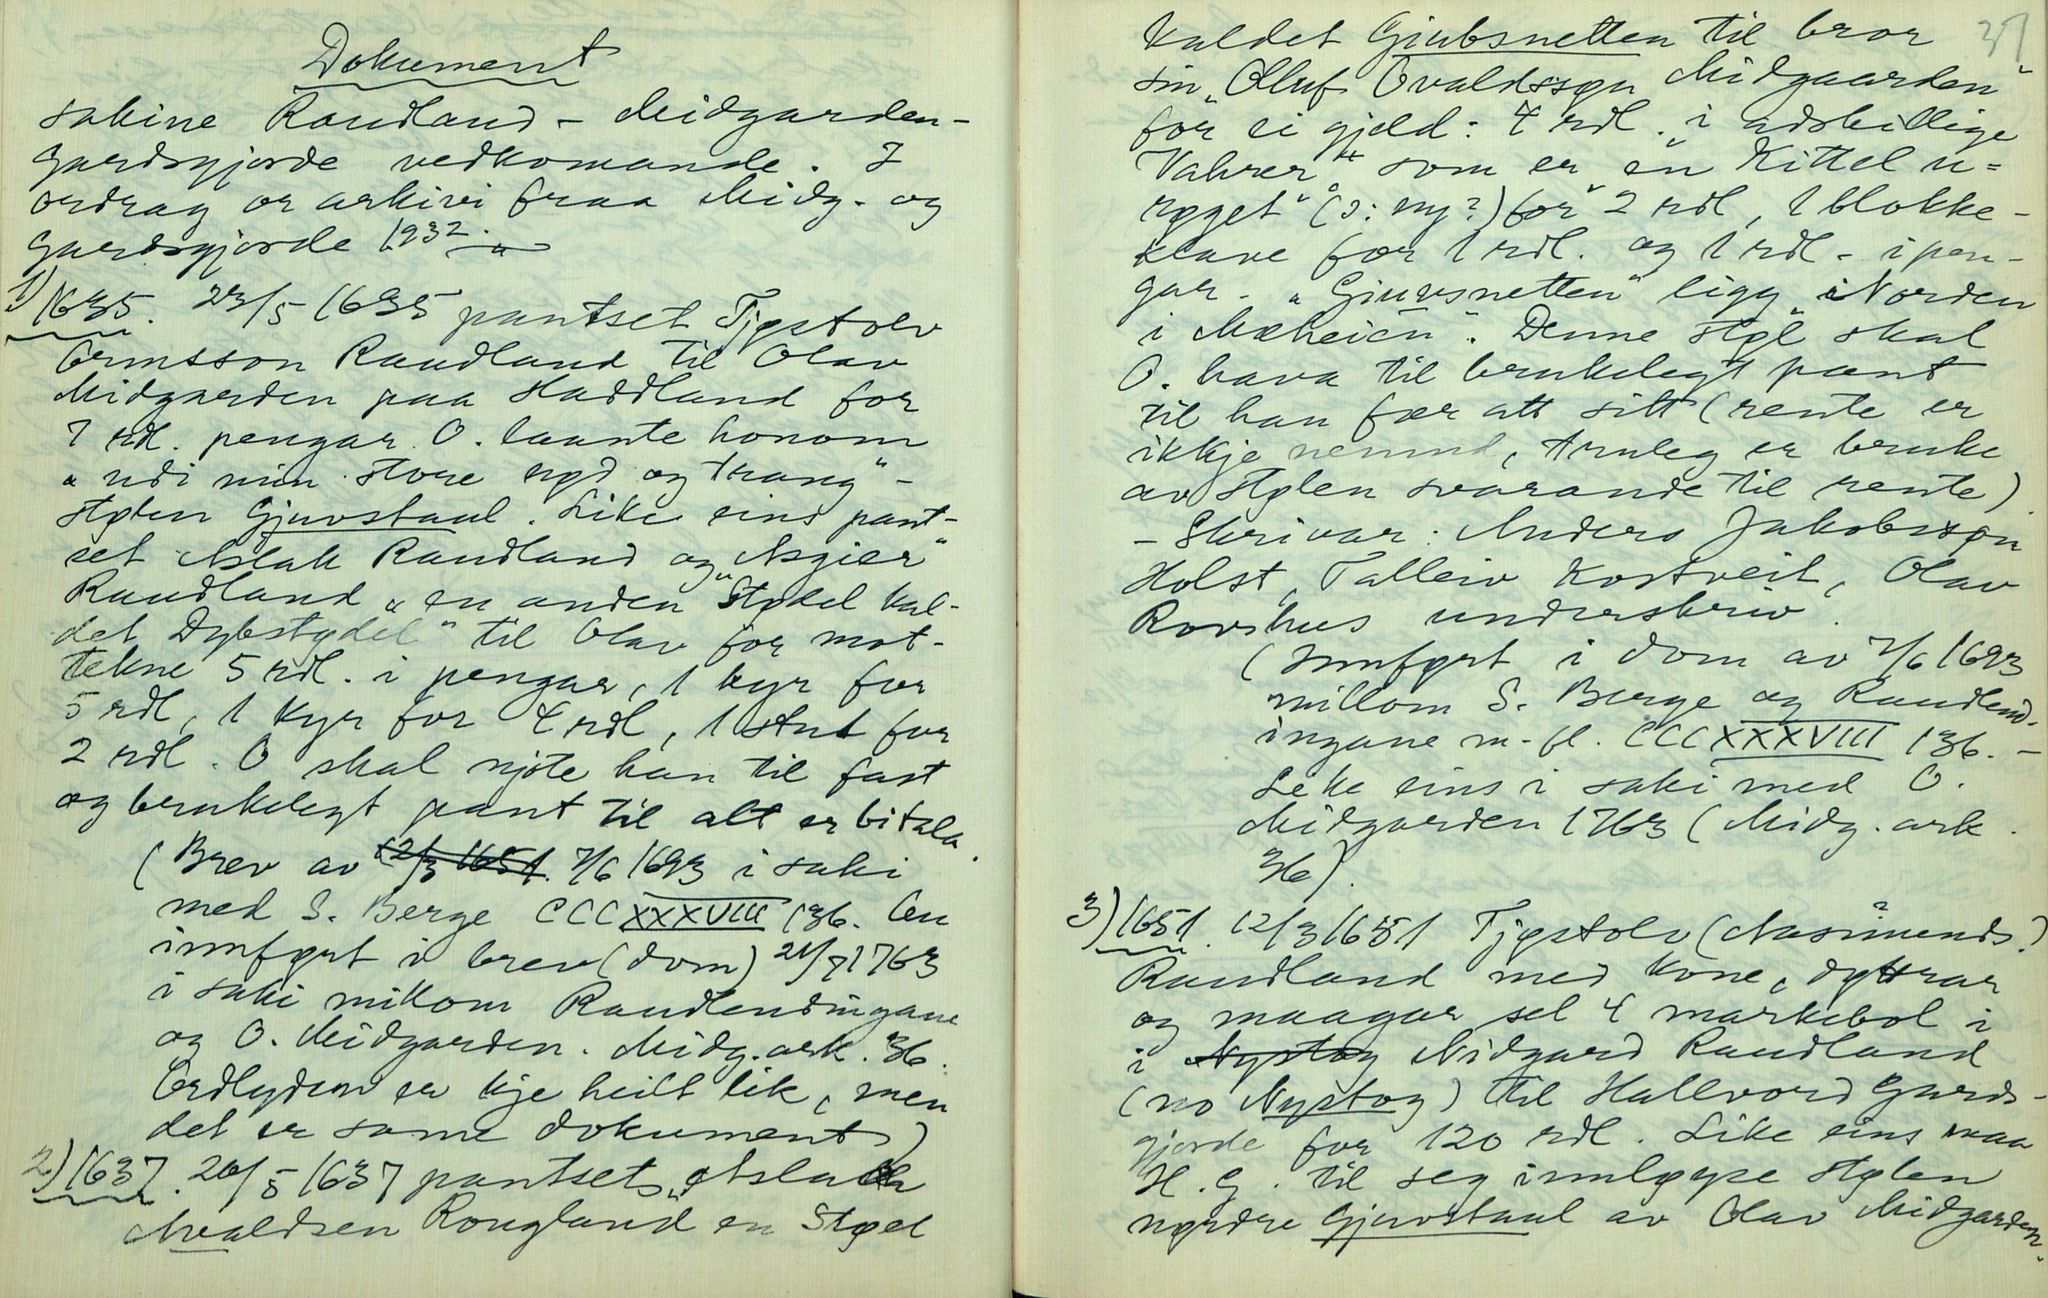 Dokument
sakine Raudland - Midgarden-
Gardsgjorde vedkomande. I
ordrag or arkivi fraa Midg. og
Gardsgjorde 1932.
1) 1635. 23/5 1635 pantset Tjøstolv
Ormsson Raudland til Olav
Midgarden paa Haddland for
7 rdl. pengar O. laante honom
"udi min store nød og trang" -
stølen Gjuvstaul. Like eins pant-
set Aslak Raudland og "Asgier"
Raudland "en anden Stødel kal-
det Dybstødel" til Olav for mot-
tekne 5 rdl. i pengar, 1 kyr for
5 rdl, 1 kyr for 4 rdl, 1 stut for
2 rdl. O skal njote han til fast
og brukelegt pant til alt er bitala.
(Brev av 12/3 1651. 7/6 1693 i saki
med S. Berge CCCXXXVIII 136. Au
innført i brev (dom) 21/9 1763
i saki millom Raudlendingane
og O. Midgarden. Midg. ark. 36.
Ordlyden er kje heilt lik, men
det er same dokument)
2) 1637. 26/5 1637 pantset "Aslak
Awaldsen Rougland" en Støel
37
kaldet Giubsnetten til bror
sin "Olluf Ovaldssøn Midgaarden"
for ei gjeld: 4 rdl. "i adskillige
Vahrer" som er "en Kittel u-
røget" (ɔ: ny?) for 2 rdl, 1 blokke-
klave for 1 rdl. og 1 rdl. i pen-
gar. "Giuvsnetten" ligg "Norden
i Mæheien". Denne støl skal
O. hava til brukelegt pant
til han fær att sitt (rente er
ikkje nemnd, truleg er bruke
av stølen svarande til rente).
- Skrivar: Anders Jakobssøn
Holst, Talleiv Kostveit, Olav
Rovshus underskriv.
(Innført i dom av 7/6 1693
millom S. Berge og Raudlend-
ingane m. fl. CCCXXXVIII 136. -
Like eins i saki med O.
Midgarden 1763 (Midg. ark.
36).
3) 1651. 12/3 1651 Tjøstolv (Aasmunds?)
Raudland med kone, døttrar
og maagar sel 4 markebol i
i Nystog Nidgard Raudland
(no Nystog) til Hallvord Gards-
gjorde for 120 rdl. Like eins maa
H. G. til seg innløyse stølen
nørdre Gjuvstaul av Olav Midgarden.